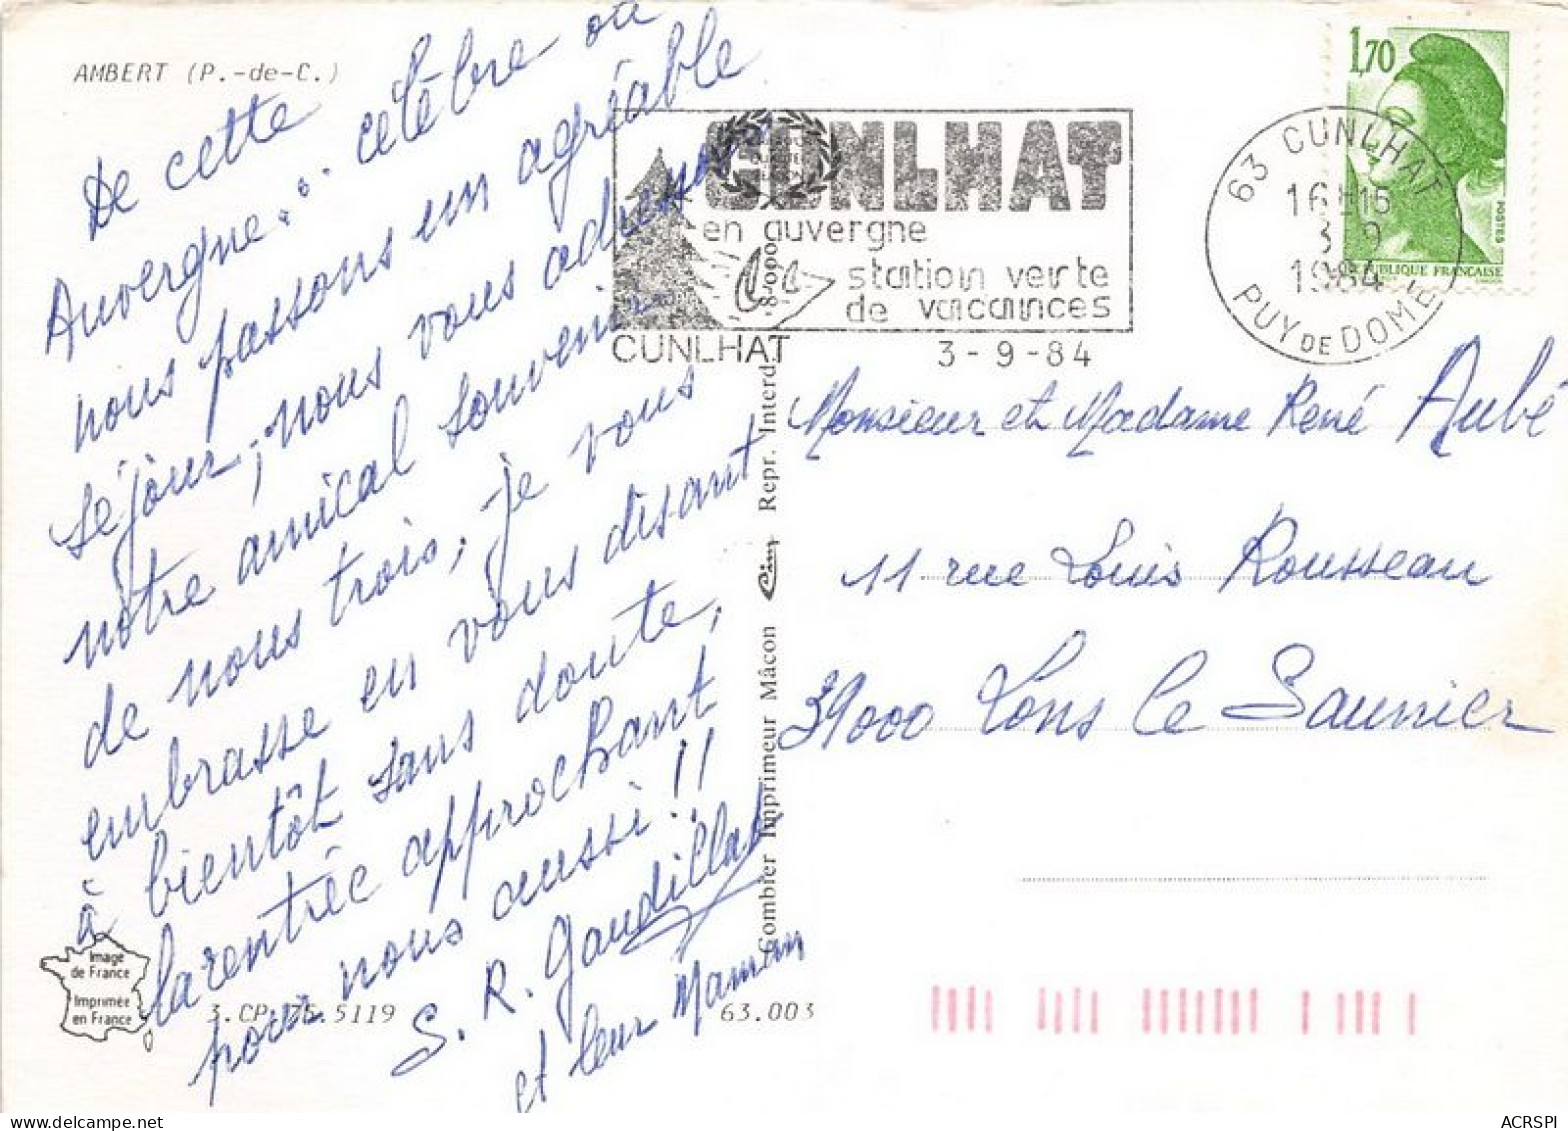 AMBERT (P.-de-C.)
De cette
Auvergne... célèbre où
nous passons un agréable
séjour, nous vous adressons
notre amical souvenir
de nous trois, je vous
embrasse en vous disant
à bientôt sans doute,
la rentrée approchant
pour nous aussi !!
S. R. Gaudillat
et leur Maman
Image
de France
Imprimée
en France
3.CP. 5119
63.003
Combier Imprimeur Mâcon Cim Repr. Interd
CUNLHAT
en auvergne
station verte
de vacances
CUNLHAT 3-9-84
63 CUNLHAT
16H15
3 9
1984
PUY DE DOME
1,70
POSTES
REPUBLIQUE FRANÇAISE
Monsieur et Madame René Aubé
11 rue Louis Rousseau
39000 Lons le Saunier
ACRSPI